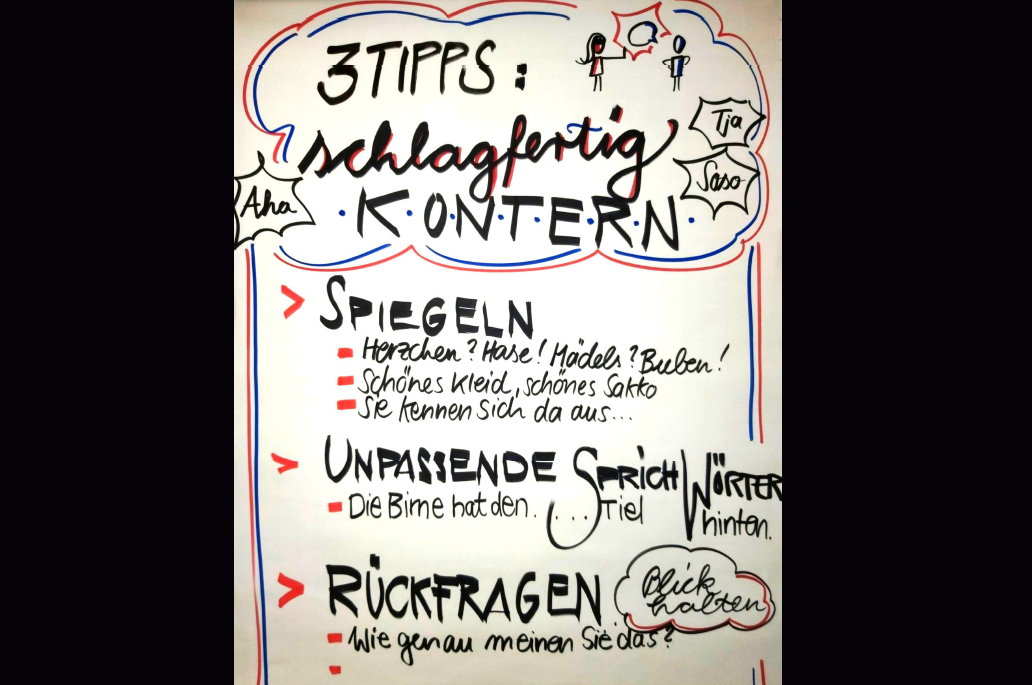 3 TIPPS:
Tja
schlagfertig
Soso
Aha
KONTERN
> SPIEGELN
Herzchen? Hase! Mädels? Buben!
Schönes Kleid, schönes Sakko
Sie kennen sich da aus...
> UNPASSENDE SPRICHWÖRTER
Die Birne hat den. ... Stiel hinten.
> RÜCKFRAGEN
Blick
halten
Wie genau meinen Sie das?